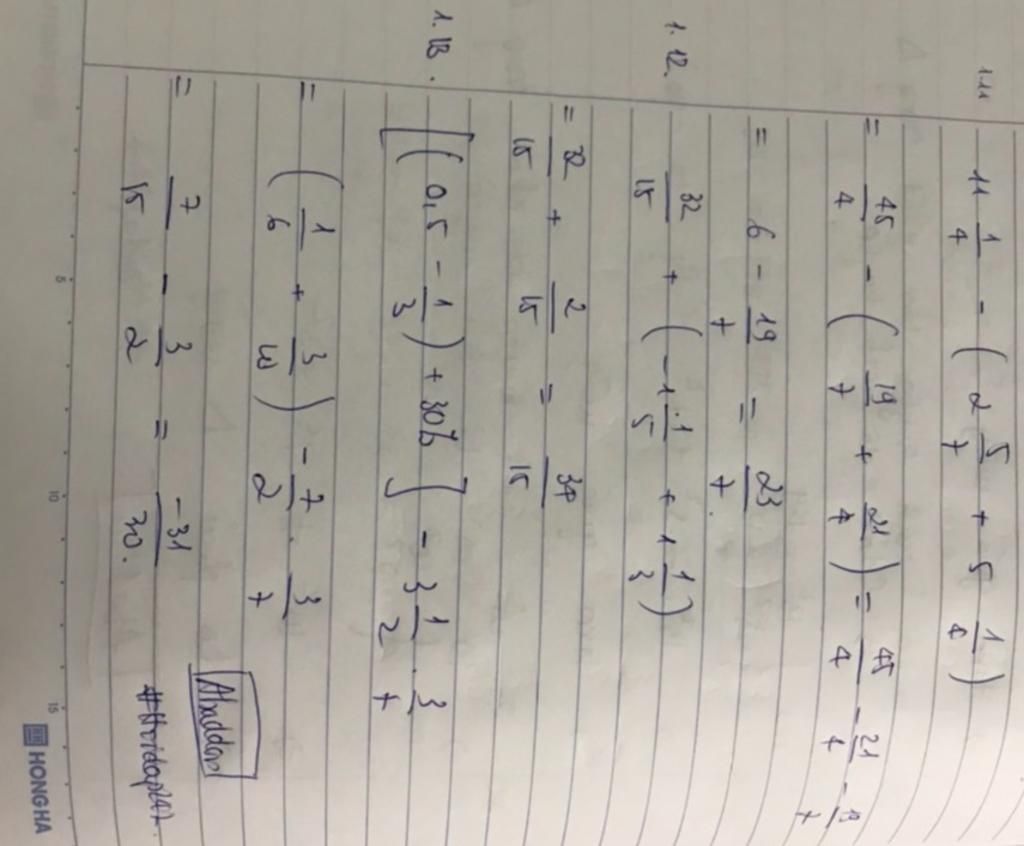 1.11 11 1/4 - (2 5/7 + 5 1/4)
= 45/4 - (19/7 + 21/4) = 45/4 - 21/4 - 19/7
= 6 - 19/7 = 23/7.
1.12. 32/15 + (-1 1/5 + 1 1/3)
= 32/15 + 2/15 = 34/15
1.13. [(0,5 - 1/3) + 30%] - 3 1/2 . 3/7
= (1/6 + 3/10) - 7/2 . 3/7
= 7/15 - 3/2 = -31/30.
Abaddon
#Hoidap247.
5 10 15
HONG HA